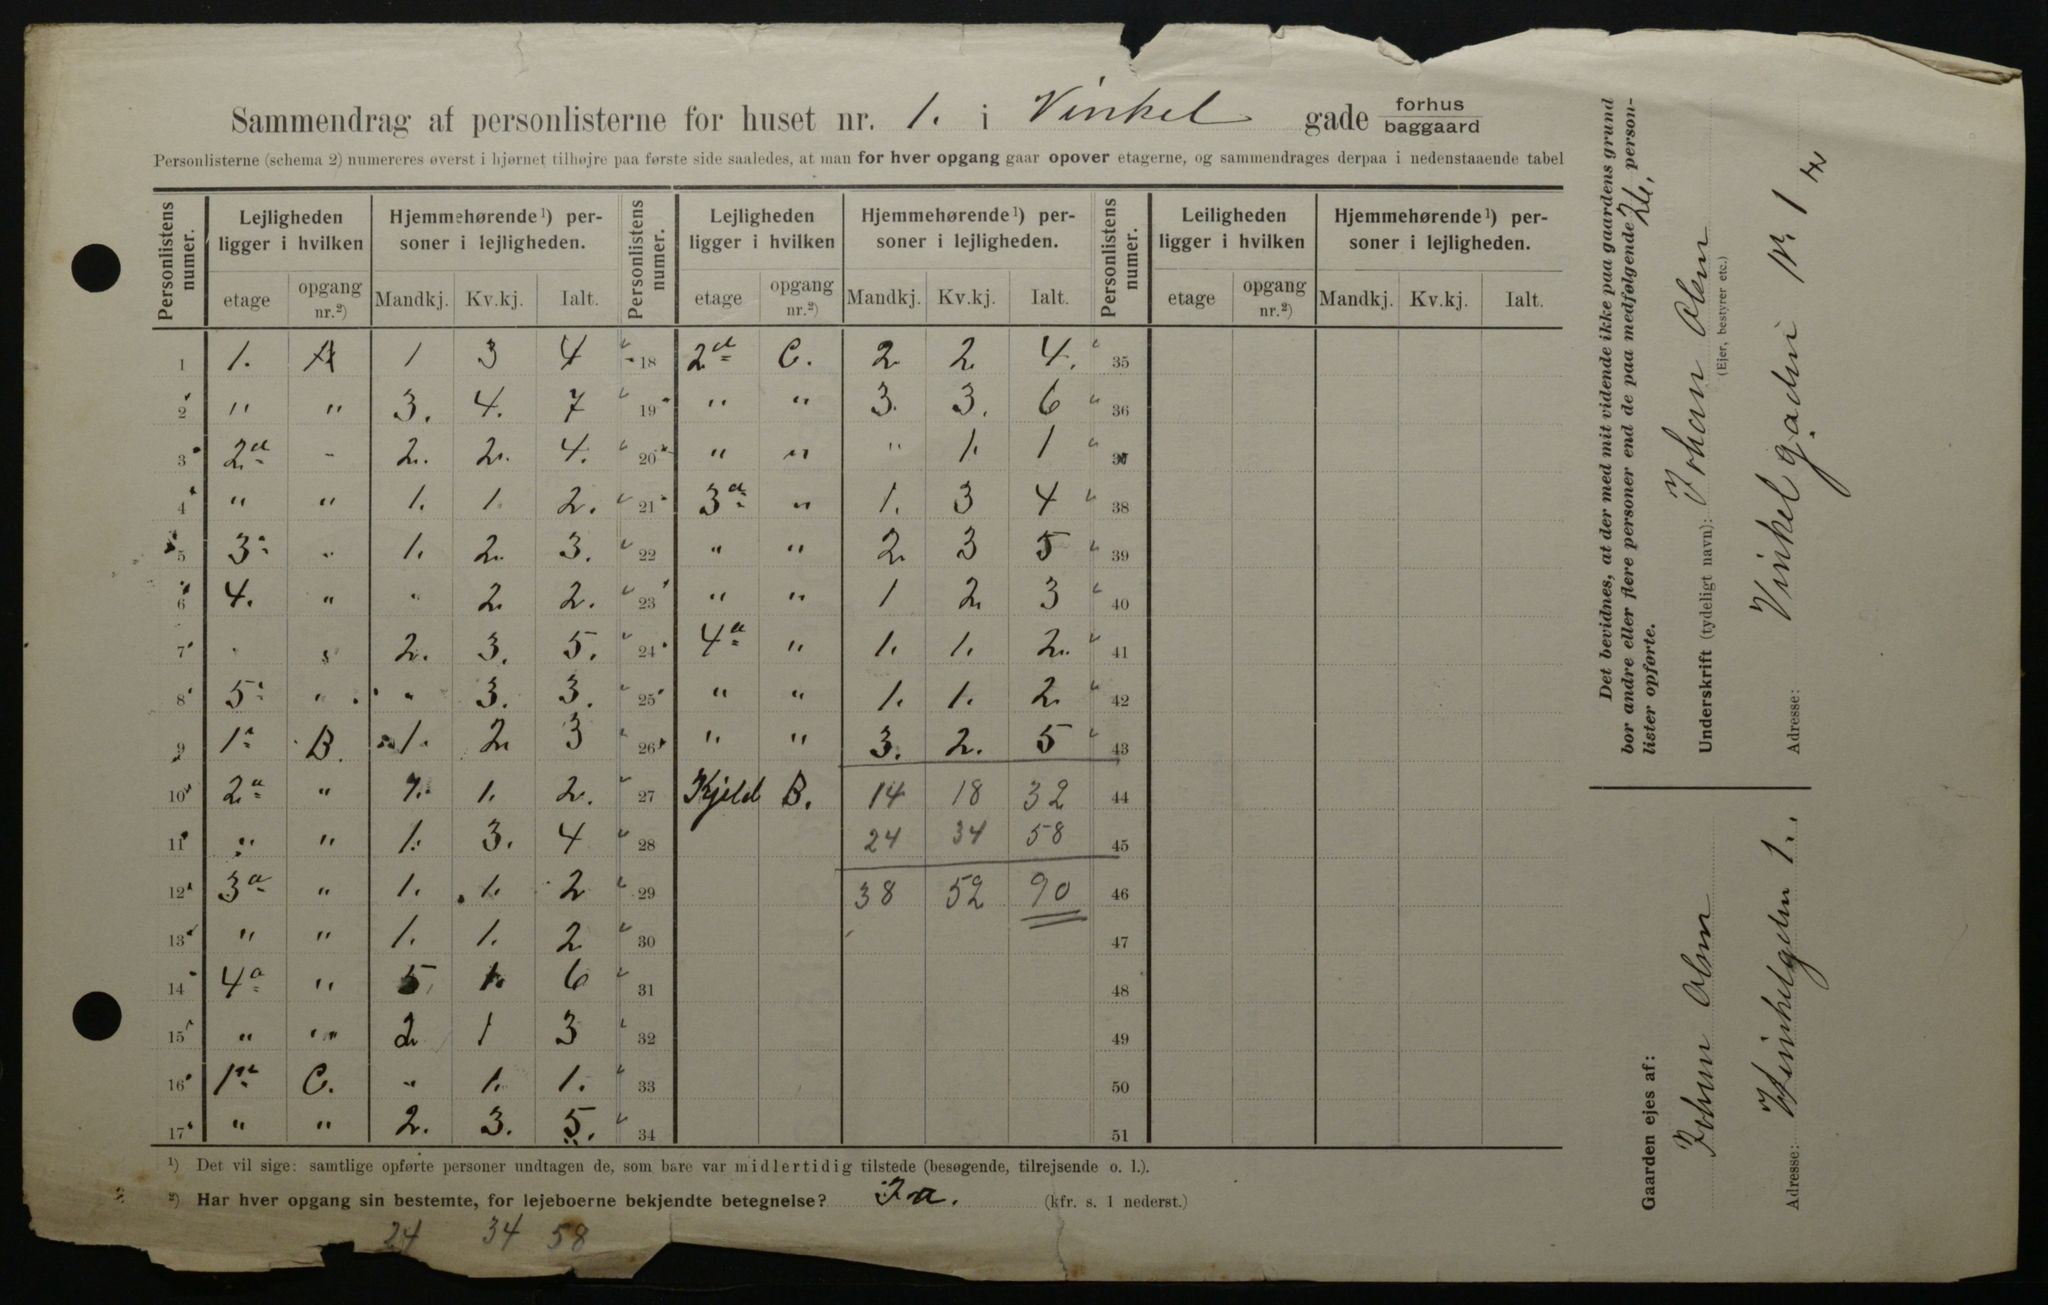 Sammendrag af personlisterne for huset nr. 1. i Vinkel gade forhus baggaard
Personlisterne (schema 2) numereres øverst i hjørnet tilhøjre paa første side saaledes, at man for hver opgang gaar opover etagerne, og sammendrages derpaa i nedenstaaende tabel
Personlistens numer. Lejligheden ligger i hvilken Hjemmehørende¹) personer i lejligheden. Personlistens numer. Lejligheden ligger i hvilken Hjemmehørende¹) personer i lejligheden. Personlistens numer. Leiligheden ligger i hvilken Hjemmehørende¹) personer i lejligheden.
etage opgang nr.²) Mandkj. Kv.kj. Ialt. etage opgang nr.²) Mandkj. Kv.kj. Ialt. etage opgang nr.²) Mandkj. Kv.kj. Ialt.
1 1. A 1 3 4 18 2d C. 2 2 4. 35
2 " " 3. 4. 7 19 " " 3. 3. 6 36
3 2d - 2. 2. 4. 20 " " " 1. 1 37
4 " " 1. 1. 2. 21 3d " 1. 3 4 38
5 3 " 1. 2. 3. 22 " " 2. 3 5 39
6 4. " " 2. 2. 23 " " 1 2. 3 40
7 " " 2. 3. 5. 24 4a " 1. 1. 2. 41
8 5 " " 3. 3. 25 " " 1. 1. 2. 42
9 1 B. 1. 2. 3 26 " " 3. 2. 5 43
10 2a " 1. 1. 2. 27 Kjeld B. 14 18 32 44
11 " " 1. 3. 4 28 24 34 58 45
12 3a " 1. 1. 2 29 38 52 90 46
13 " " 1. 1. 2 30 47
14 4a " 5 1. 6 31 48
15 " " 2 1 3 32 49
16 1ste C. " 1. 1. 33 50
17 " " 2. 3. 5. 34 51
¹) Det vil sige: samtlige opførte personer undtagen de, som bare var midlertidig tilstede (besøgende, tilrejsende o. l.).
²) Har hver opgang sin bestemte, for lejeboerne bekjendte betegnelse? Ja. (kfr. s. 1 nederst.)
24 34 58
Det bevidnes, at der med mit vidende ikke paa gaardens grund
bor andre eller flere personer end de paa medfølgende 26, person-
lister opførte.
Underskrift (tydeligt navn): Johan Olsen
(Ejer, bestyrer etc.)
Adresse: Vinkelgaden N. 1
Gaarden ejes af:
Johan Olsen
Adresse: Vinkelgden 1.